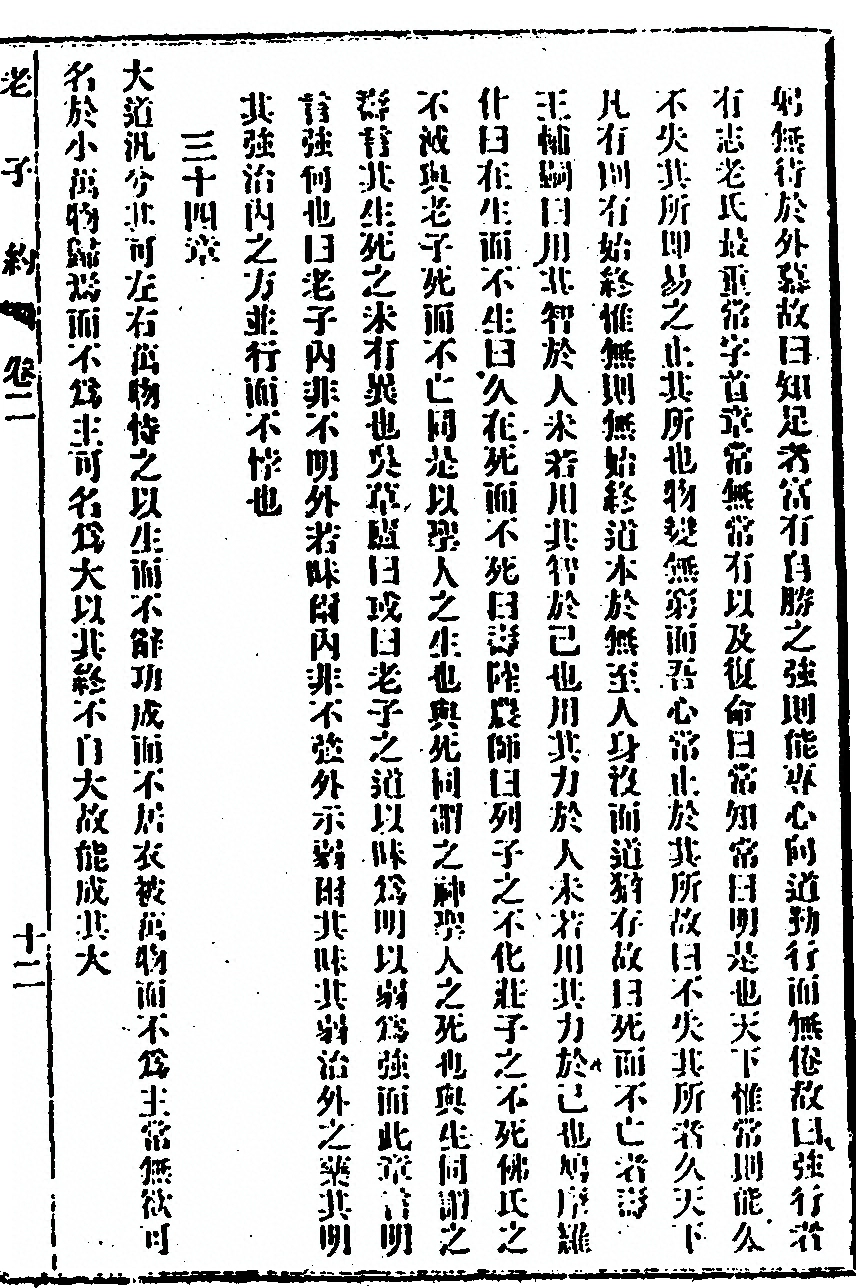 躬無待於外慕故曰知足者富有自勝之強則能專心向道勤行而無倦故曰強行者
有志老氏最重常字首章常無常有以及復命曰常知常曰明是也天下惟常則能久
不失其所即易之止其所也物變無窮而吾心常止於其所故曰不失其所者久天下
凡有則有始終惟無則無始終道本於無至人身沒而道猶存故曰死而不亡者壽
王輔嗣曰用其智於人未若用其智於己也用其力於人未若用其力於己也鳩摩羅
什曰在生而不生曰久在死而不死曰壽陸農師曰列子之不化莊子之不死佛氏之
不滅與老子死而不亡同是以聖人之生也與死同謂之神聖人之死也與生同謂之
群言其生死之未有異也吳草廬曰或曰老子之道以昧為明以弱為強而此章言明
言強何也曰老子內非不明外若昧爾內非不強外示弱爾其昧其弱治外之藥其明
其強治內之方並行而不悖也
三十四章
大道汎兮其可左右萬物恃之以生而不辭功成而不居衣被萬物而不為主常無欲可
名於小萬物歸焉而不為主可名為大以其終不自大故能成其大
老子約 卷二 十二